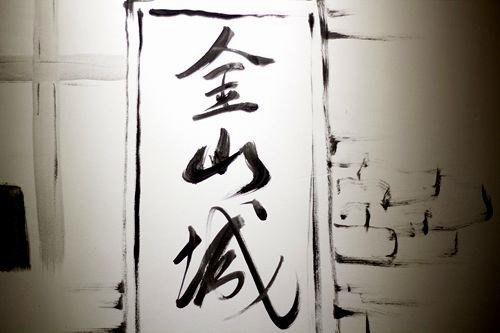 金山城